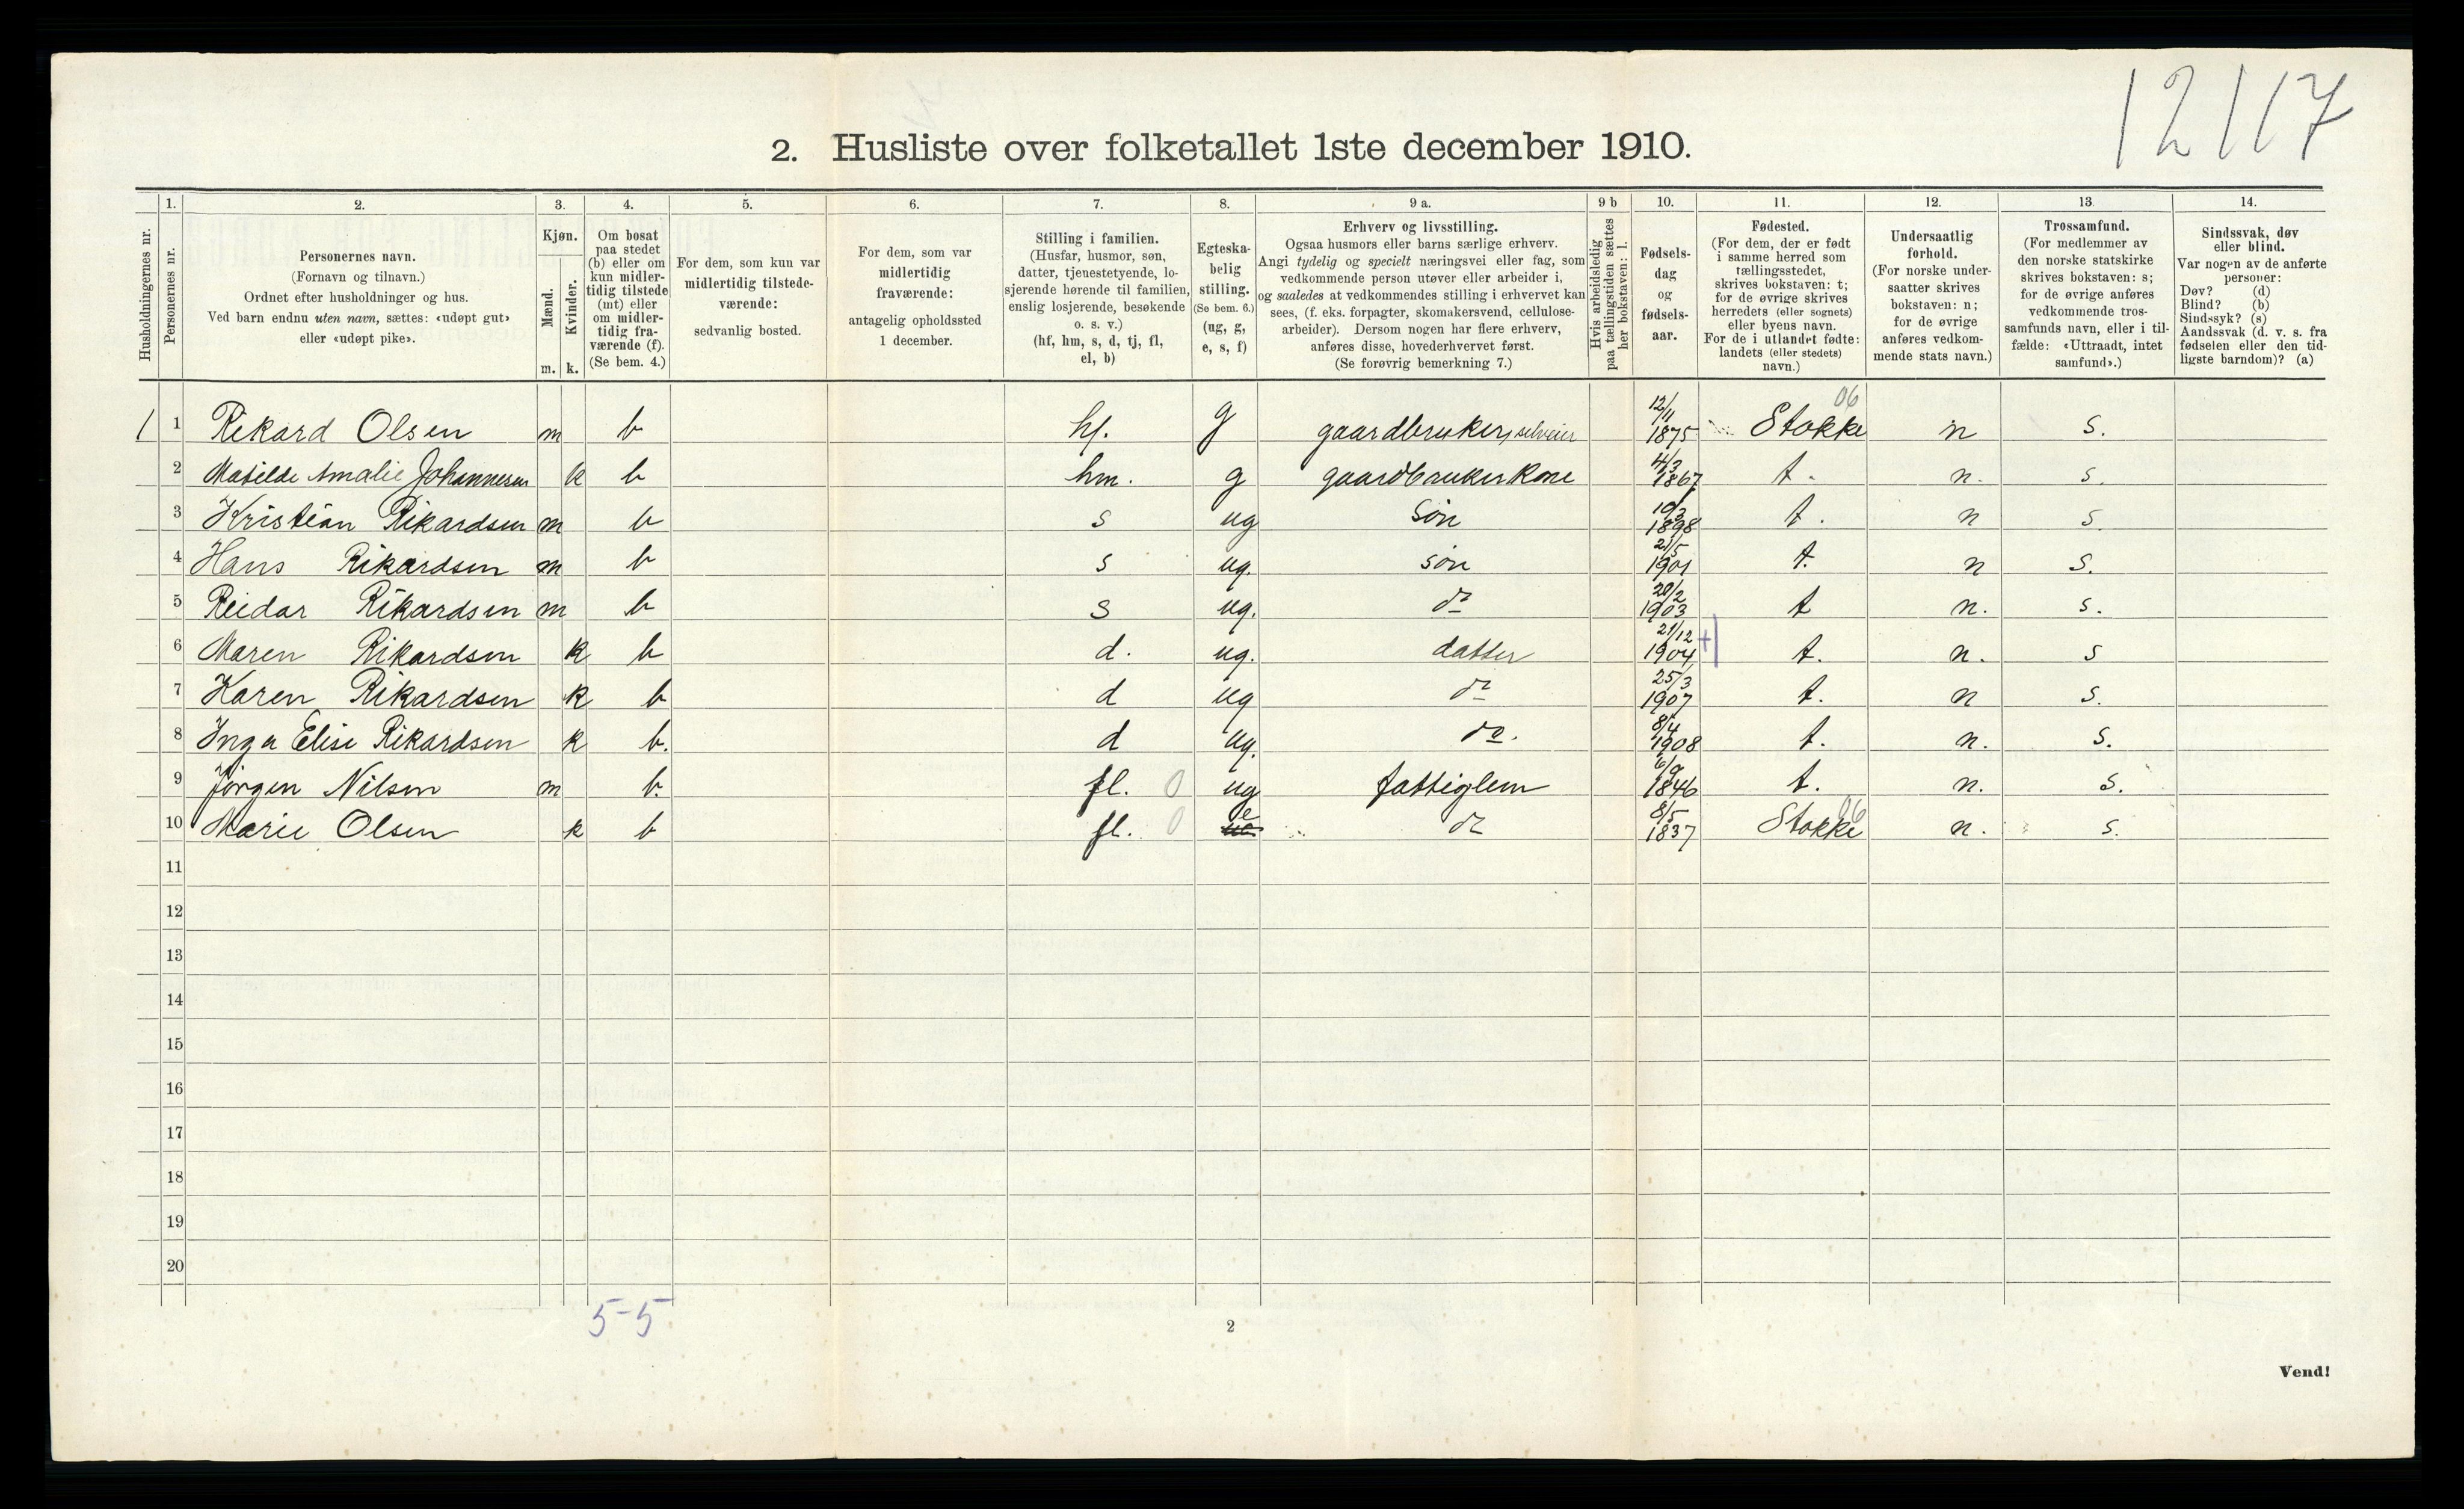 12/17
2. Husliste over folketallet 1ste december 1910.
Husholdningernes nr.
1. Personernes nr.
2. Personernes navn.
(Fornavn og tilnavn.)
Ordnet efter husholdninger og hus.
Ved barn endnu uten navn, sættes: «udøpt gut»
eller «udøpt pike».
3. Kjøn.
Mænd. m.
Kvinder. k.
4. Om bosat
paa stedet
(b) eller om
kun midler-
tidig tilstede
(mt) eller
om midler-
tidig fra-
værende (f).
(Se bem. 4.)
5. For dem, som kun var
midlertidig tilstede-
værende:
sedvanlig bosted.
6. For dem, som var
midlertidig
fraværende:
antagelig opholdssted
1 december.
7. Stilling i familien.
(Husfar, husmor, søn,
datter, tjenestetyende, lo-
sjerende hørende til familien,
enslig losjerende, besøkende
o. s. v.)
(hf, hm, s, d, tj, fl,
el, b)
8. Egteska-
belig
stilling.
(Se bem. 6.)
(ug, g,
e, s, f)
9 a. Erhverv og livsstilling.
Ogsaa husmors eller barns særlige erhverv.
Angi tydelig og specielt næringsvei eller fag, som
vedkommende person utøver eller arbeider i,
og saaledes at vedkommendes stilling i erhvervet kan
sees, (f. eks. forpagter, skomakersvend, cellulose-
arbeider). Dersom nogen har flere erhverv,
anføres disse, hovederhvervet først.
(Se forøvrig bemerkning 7.)
9 b Hvis arbeidsledig
paa tællingstiden sættes
her bokstaven: l.
10. Fødsels-
dag
og
fødsels-
aar.
11. Fødested.
(For dem, der er født
i samme herred som
tællingsstedet,
skrives bokstaven: t;
for de øvrige skrives
herredets (eller sognets)
eller byens navn.
For de i utlandet fødte:
landets (eller stedets)
navn.)
12. Undersaatlig
forhold.
(For norske under-
saatter skrives
bokstaven: n;
for de øvrige
anføres vedkom-
mende stats navn.)
13. Trossamfund.
(For medlemmer av
den norske statskirke
skrives bokstaven: s;
for de øvrige anføres
vedkommende tros-
samfunds navn, eller i til-
fælde: «Uttraadt, intet
samfund».)
14. Sindssvak, døv
eller blind.
Var nogen av de anførte
personer:
Døv? (d)
Blind? (b)
Sindssyk? (s)
Aandssvak (d. v. s. fra
fødselen eller den tid-
ligste barndom)? (a)
1 1 Rikard Olsen m b hf. g gaardbruker, selveier 12/11 1875 Stokke 06 n s.
2 Matilde Amalie Johannesen k b hm. g gaardbrukerkone 4/3 1867 t. n. s.
3 Kristian Rikardsen m b s ug søn 10/3 1898 t. n s
4 Hans Rikardsen m b s ug. søn 21/5 1901 t. n s.
5 Reidar Rikardsen m b s ug. do 20/2 1903 t n. s.
6 Maren Rikardsen k b d. ug. datter 21/12 1904 t. n. s
7 Karen Rikardsen k b d ug do 25/3 1907 t. n s.
8 Inga Elise Rikardsen k b. d ug. do. 8/4 1908 t. n. s.
9 Jörgen Nilsen m b. fl. 0 ug fattiglem 6/9 1846 t. n. s.
10 Marie Olsen k b fl. 0 e do 8/5 1837 Stokke 06 n. s.
11
12
13
14
15
16
17
18
19
20
5-5
2
Vend!